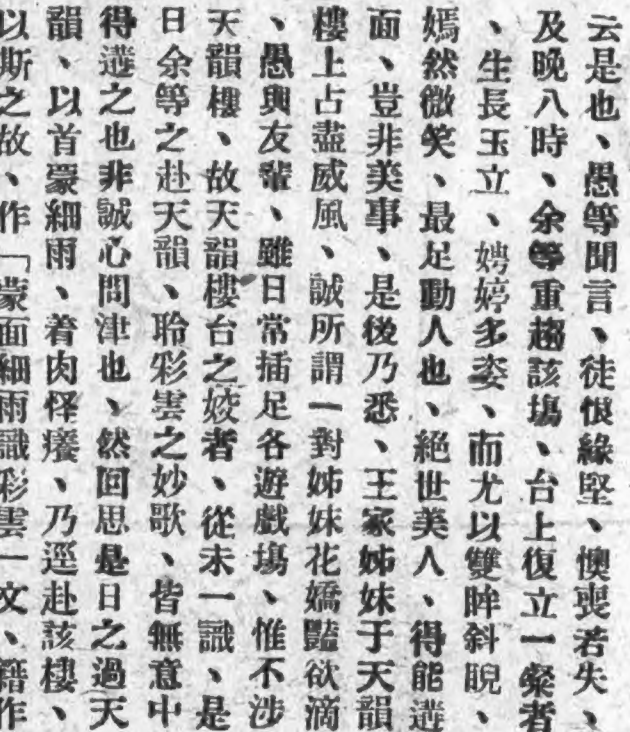 云是也、愚等聞言、徒恨緣堅、懊喪若失、
及晚八時、余等重趨該塲、台上復立一粲者
、生長玉立、娉婷多姿、而尤以雙眸斜睨、
嫣然微笑、最足動人也、絕世美人、得能遘
面、豈非美事、是後乃悉、王家姊妹于天韻
樓上占盡威風、誠所謂一對姊妹花嬌豔欲滴
、愚與友輩、雖日常插足各遊戲塲、惟不涉
天韻樓、故天韻樓台之姣者、從未一識、是
日余等之赴天韻、聆彩雲之妙歌、皆無意中
得遘之也非誠心問津也、然回思是日之過天
韻、以首蒙細雨、着肉怪癢、乃逕赴該樓、
以斯之故、作「蒙面細雨識彩雲一文、籍作